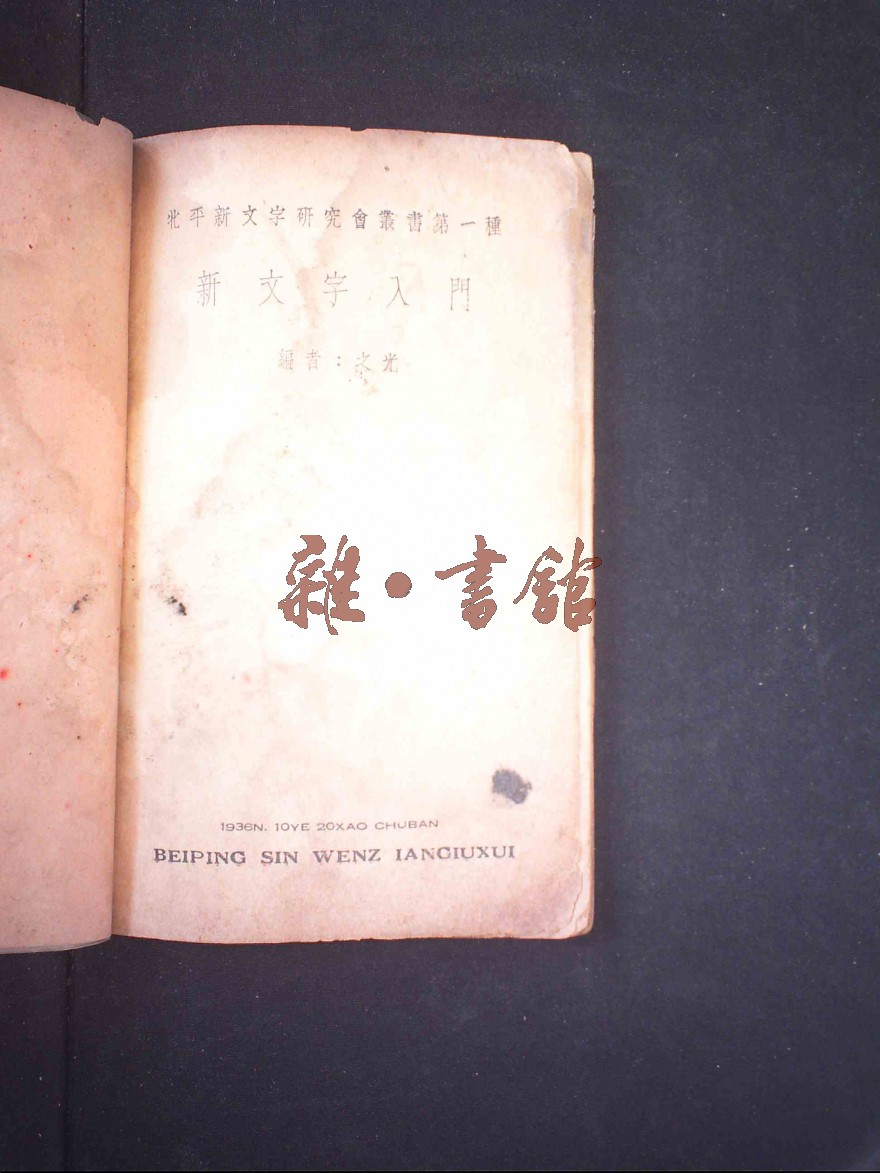 北平新文字研究會叢書第一種
新文字入門
編者:之光
雜·書館
1936N. 10YE 20XAO CHUBAN
BEIPING SIN WENZ IANGIUXUI